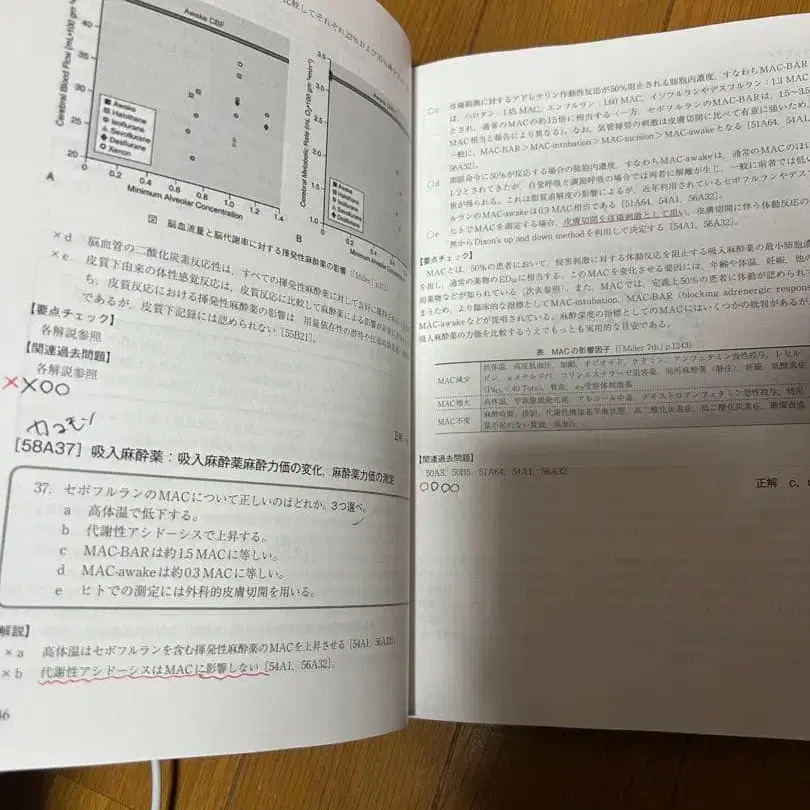 Awake CBF
Cerebral Blood Flow (mL•100 gm
40
35
30
25
20
Awake
Halothane
Isoflurane
Sevoflurane
Desflurane
Xenon
0 0.2 0.4 0.6 0.8 1.0 1.2 1.4
Minimum Alveolar Concentration
A
3.5
3.0
2.5
2.0
1.5
1.0
0 0.2 0.4 0.6
Minimum Alveolar
B
図 脳血流量と脳代謝率に対する揮発性麻酔薬の影響
×d 脳血管の二酸化炭素反応性は，すべての揮発性麻酔薬に対して良好に維持
×e 皮質下由来の体性感覚反応は，皮質反応に比較して麻酔薬による影響が
ち，皮質反応における揮発性麻酔薬の影響は，用量依存性の潜時
であるが，皮質下記録には認められない［55B21］．
【要点チェック】
各解説参照
【関連過去問題】
各解説参照
××○○
正解
［58A37］吸入麻酔薬：吸入麻酔薬麻酔力価の変化，麻酔薬力価の測定
37. セボフルランのMACについて正しいのはどれか．3つ選べ．
a 高体温で低下する．
b 代謝性アシドーシスで上昇する．
c MAC-BARは約1.5 MACに等しい．
d MAC-awakeは約0.3 MACに等しい．
e ヒトでの測定には外科的皮膚切開を用いる．
解説】
×a 高体温はセボフルランを含む揮発性麻酔薬のMACを上昇させる［54A1，56A32］
×b 代謝性アシドーシスはMACに影響しない［54A1，56A32］．
46
○c 疼痛刺激に対するアドレナリン作動性反応が50%阻止される肺胞内濃度，すなわちMAC-BAR
は，ハロタン：1.45 MAC，エンフルラン：1.60 MAC，イソフルランやデスフルラン：1.3 MAC
とされ，通常のMACの約1.5倍に相当する（一方，セボフルランのMAC-BARは，1.5～3.5
MAC相当と報告により異なる）．なお，気管挿管の刺激は皮膚切開に比べて有意に強いため，
一般に，MAC-BAR＞MAC-intubation＞MAC-incision＞MAC-awakeとなる［51A64，54A1，
56A32］．
○d 開眼命令に50%が反応する場合の肺胞内濃度，すなわちMAC-awakeは，通常のMACのほぼ
1/2とされてきたが，自発呼吸と調節呼吸の場合では両者に解離が生じ，一般に前者では低い
値が得られる．これは脂質溶解度の影響によるが，近年利用されているセボフルランやデスフ
ルランのMAC-awakeは0.3 MAC相当である［51A64，54A1，56A32］．
○e ヒトでMACを測定する場合，皮膚切開を疼痛刺激として用い，皮膚切開に伴う体動反応の
無からDixon's up and down methodを利用して決定する［54A1，56A32］．
【要点チェック】
MACとは，50%の患者において，侵害刺激に対する体動反応を阻止する吸入麻酔薬の最小肺胞
を指し，通常の薬物のED50に相当する．このMACを変化させる要因には，年齢や体温，妊娠，他の
用薬物などが知られている（次表参照）．また，MACでは，定義上50%の患者に体動が認められ
まうため，より臨床的な指標としてMAC-intubation，MAC-BAR（blocking adrenergic response
MAC-awakeなどが提唱されている．麻酔深度の指標としてのMACにはいくつかの批判があるが
の麻酔薬の力価を比較するうえでもっとも実用的な目安である．
表 MACの影響因子（「Miller 7th」p.1243）
MAC減少
低体温，高度低血圧，加齢，オピオイド，ケタミン，アンフェタミン慢性投与，レセル
ピン，αメチルドパ，コリンエステラーゼ阻害薬，局所麻酔薬（静注），妊娠，低酸素症
（PaO2＜40 Torr），貧血，α2受容体刺激薬
MAC増大
高体温，甲状腺機能亢進，アルコール中毒，デキストロアンフェタミン急性投与，
MAC不変
麻酔時間，性別，代謝性酸塩基平衡状態，高二酸化炭素症，低二酸化炭素症，
【関連過去問題】
50A3，50B5，51A64，54A1，56A32
○○○○
正解 c,